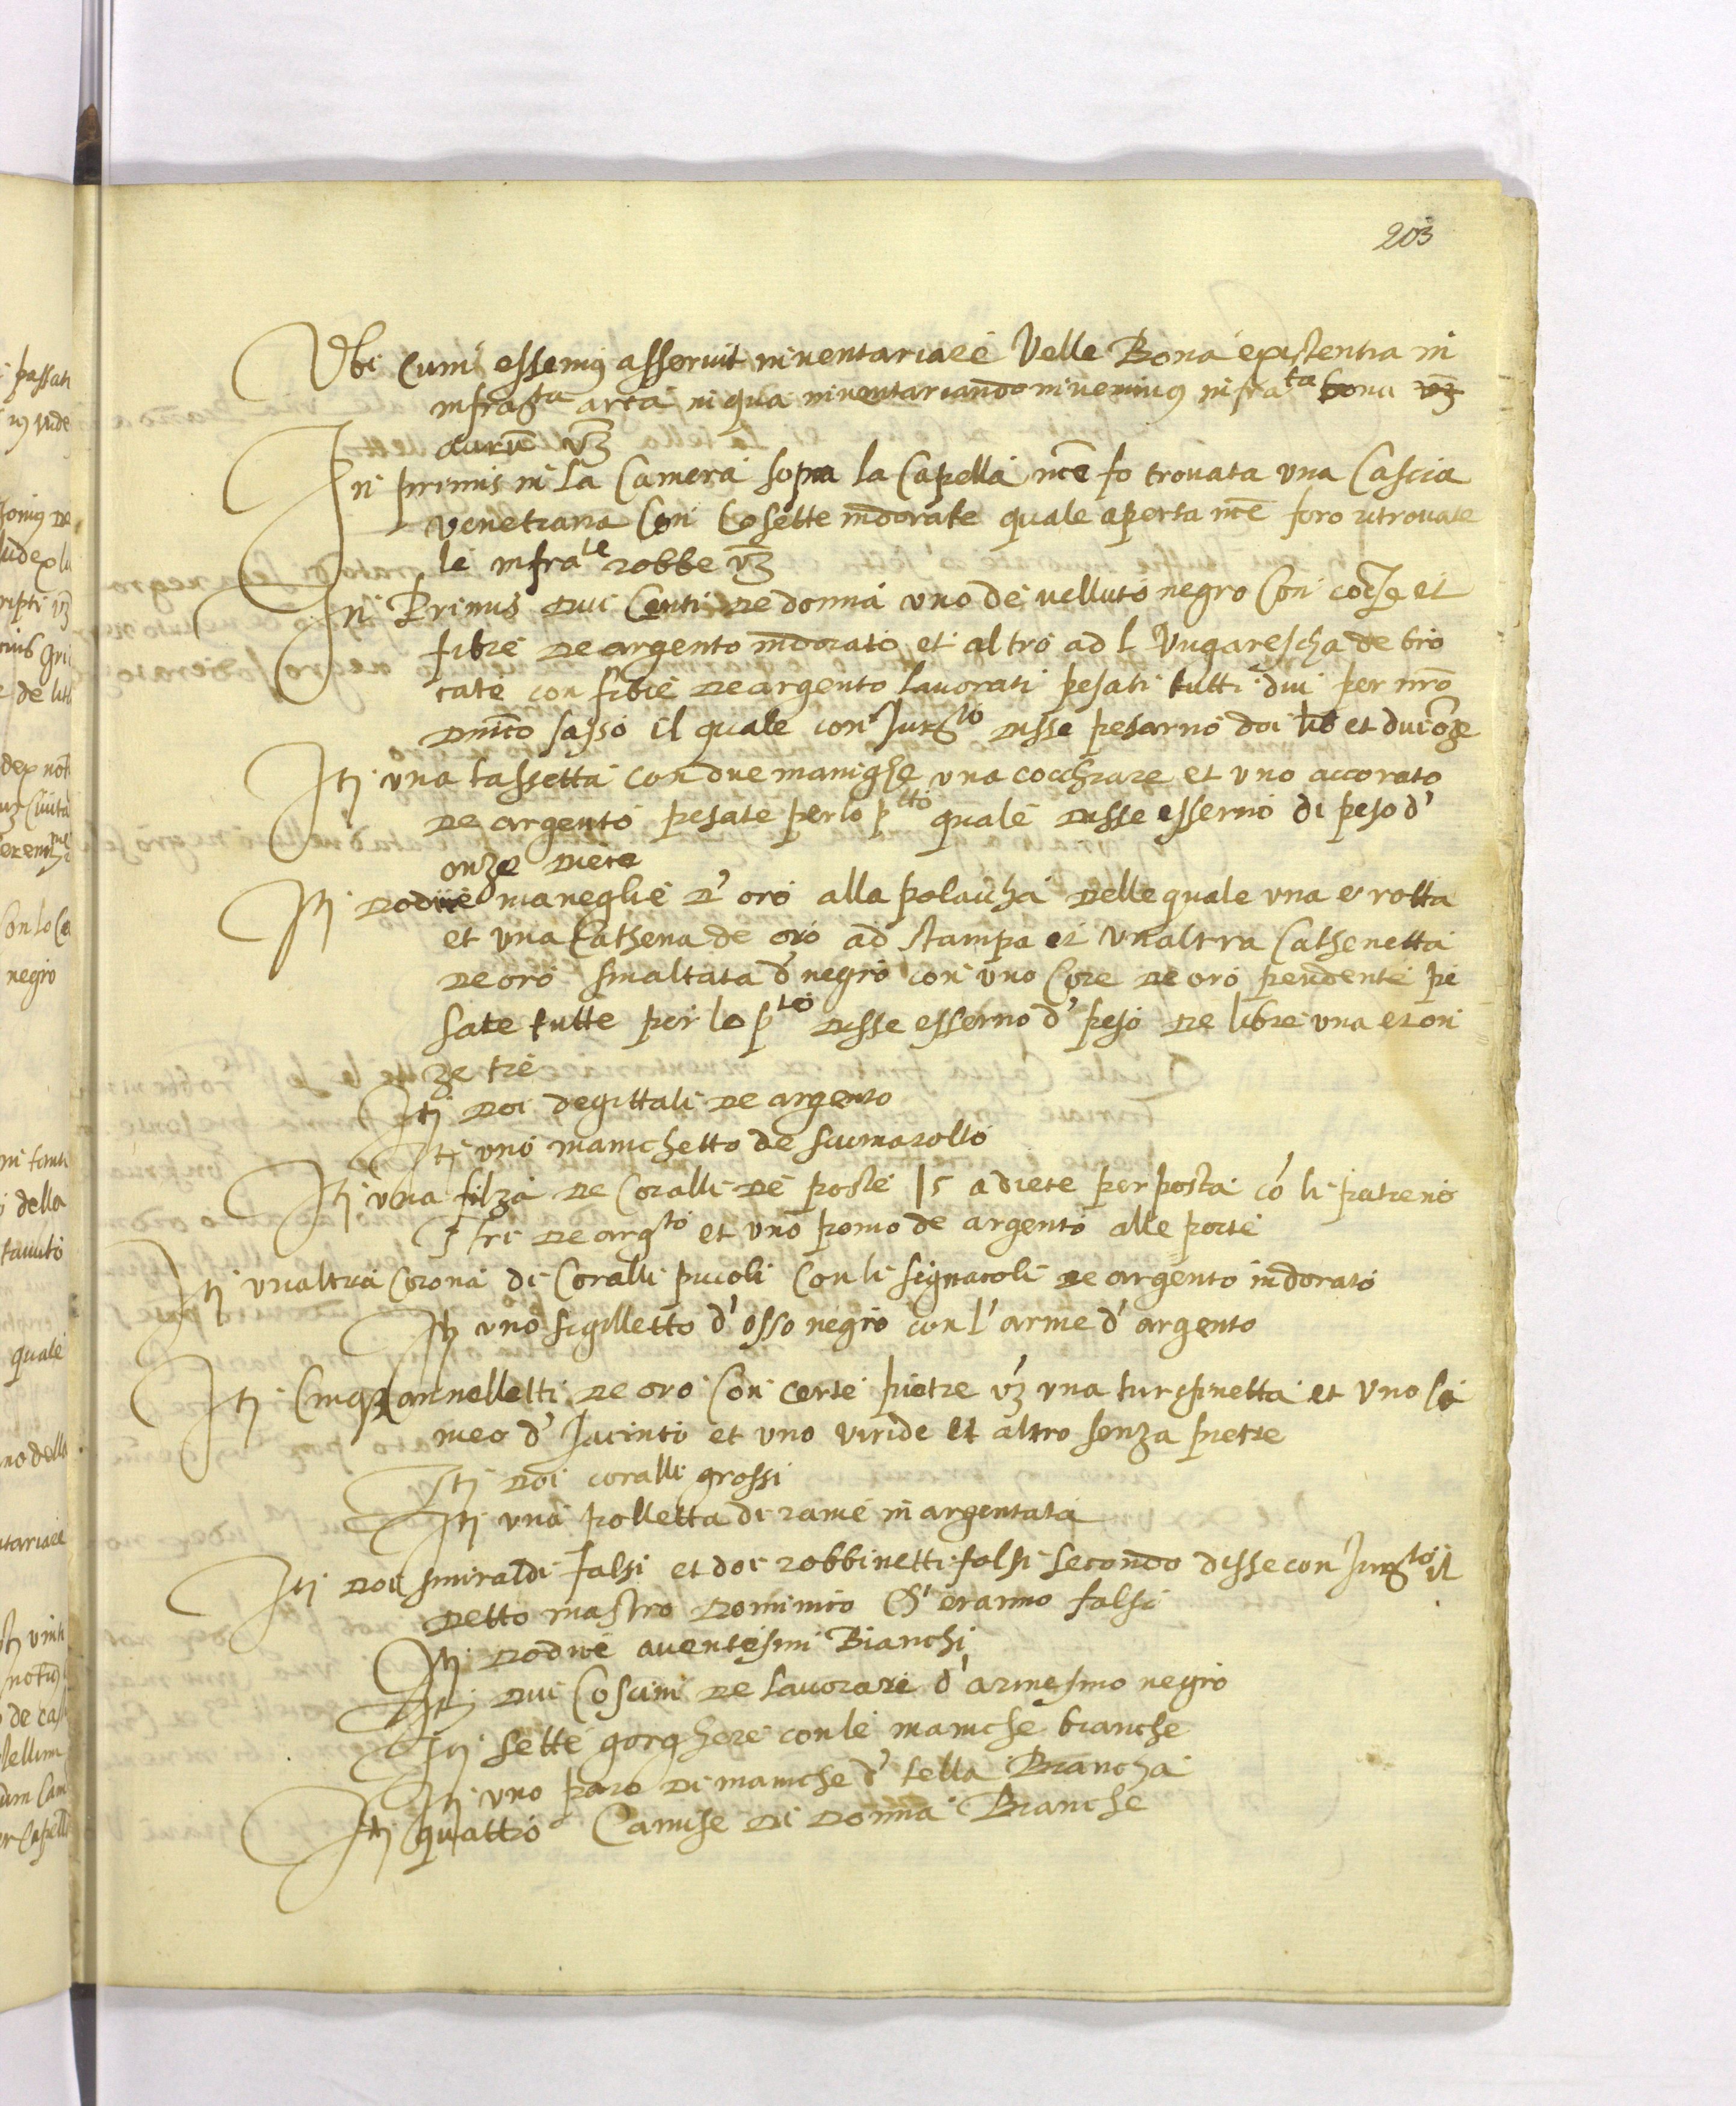 203
Ubi cum essemus asseruit inventariare velle Bona existentia in
infrasta arca in qua inventariando invenimus infrata bona vz
vz
In primis in la Camera sopra la Capella nce fo trovata una Cascia
venetiana Con Cosette indorate quale aperta nce foro ritrovate
le infrate robbe vz
In Primis dui Centi de donna uno de velluto negro Con et
fibie de argento indorato et altro ad l Ungarescha de bro
cate con fibie de argento lavorati pesati tutti dui per mro
Dnico sasso il quale con Jurto disse pesarno doi lib et dui oze
Iti una tassetta con due manighe una cocchiare et uno accorato
de argento pesate per lo ptto quale disse esserno di peso d'
onze diece
Iti dodice maneglie d' oro alla polaccha delle quale una e rotta
et una Cathena de oro ad stampa et unaltra Cathenetta
de oro smaltata d' negro con uno Core de oro pendente pe
sate tutte per lo ptto disse esserno d' peso de libre una et on
ze tre
Iti doi degittali de argento
Iti uno manichetto de
Iti una filza de Coralli de poste 15 a diece per posta co li paterno
stri de argto et uno pomo de argento alle poste
Iti unaltra Corona di Coralli piccoli Con li signacoli de argento indorato
Iti uno sigilletto d' osso negro con l'arme d' argento
Iti Cinque annelletti de oro Con certe pietre vz una turchinetta et uno Ca
meo d' Jacinto et uno viride et altro senza pietre
Iti doi coralli grossi
Iti una polletta di rame in argentata
Iti doi smiraldi falsi et doi robbinetti falsi secondo disse con Jurto il
detto mastro Dominico ch' eranno falsi
Iti dodice aventesimi Bianchi
Iti dui Coscini de lavorare d' armesino negro
Iti sette gorghere con le maniche bianche
Iti uno paro di maniche d' tella Biancha
Iti quattro Camise di Donna Bianche